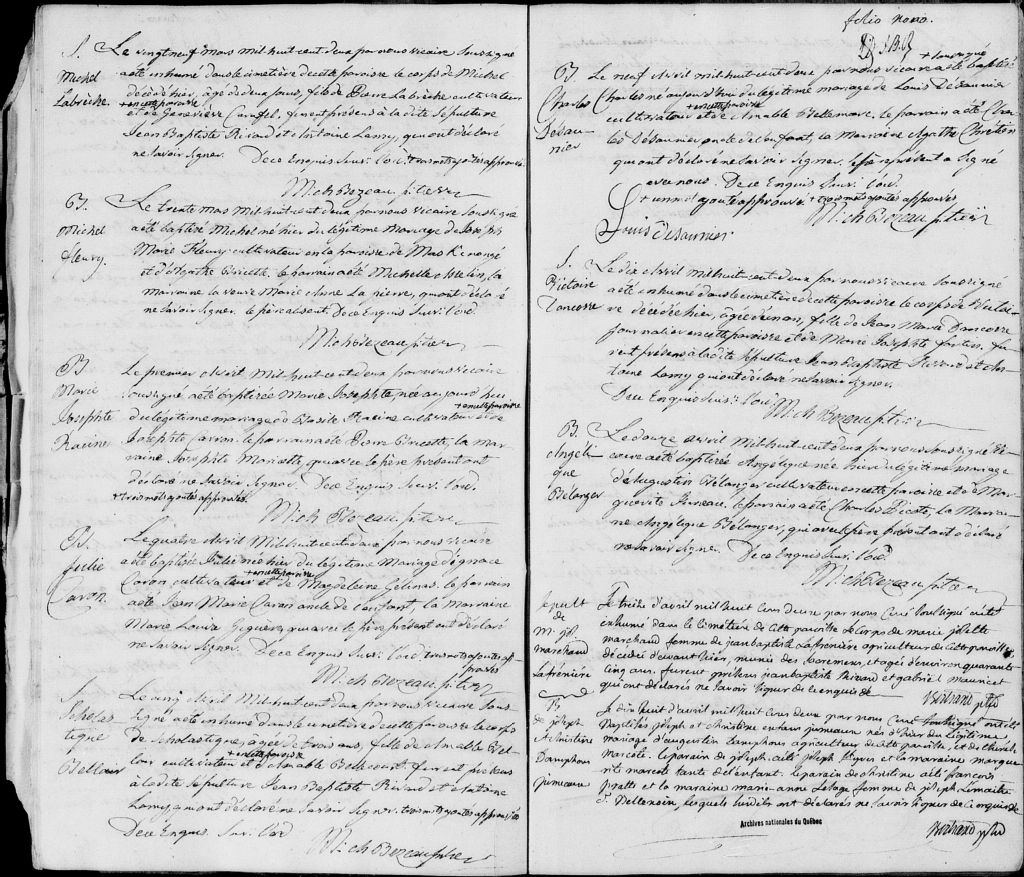 S.
Michel
Labrèche.
Le vingtneuf mars mil huit cent deux par nous vicaire soussigné
a été inhumé dans le cimetière de cette paroisse le corps de Michel
décédé hier, âgé de deux jours, fils de Pierre Labrèche cultivateur
+ en cette paroisse
et de Geneviève furent présens à la dite sépulture
Jean Baptiste Rivard et Antoine Lamy, qui ont déclaré
ne savoir signer. De ce Enquis Suiv. l'ord. + trois mots ajoutés approuvés
Mich Bezeau ptre vic
B.
Michel
fleury.
Le trente mars mil huit cent deux par nous vicaire soussigné
a été baptisé Michel né hier du légitime mariage de Joseph
Marie Fleury cultivateur en la paroisse de Maskinongé
et d'Agathe le parrain a été Michel la
marraine la veuve Marie Anne La pierre, qui ont déclaré
ne savoir signer. le père absent. De ce Enquis Suiv. l'ord.
Mich Bezeau ptre vic
B.
Marie
Josephte
Racine
Le premier Avril mil huit cent deux par nous vicaire
soussigné a été baptisée Marie Josephte née aujourd'hui
+ en cette paroisse
du légitime mariage de Basile Racine cultivateur et de
Josephte Caron. le parrain a été Pierre la mar
raine Josephte qui avec le père présent ont
déclaré ne savoir signer. De ce Enquis Suiv. l'ord.
+ trois mots ajoutés approuvés.
Mich Bezeau ptre vic
B.
Julie
Caron.
Le quatre Avril mil huit cent deux par nous vicaire
a été baptisée Julie née hier du légitime mariage d'ignace
+ en cette paroisse
Caron cultivateur et de Magdeleine Gelinas. le parrain
a été Jean Marie Caron oncle de l'enfant, la marraine
Marie Louise qui avec le père présent ont déclaré
ne savoir signer. De ce Enquis Suiv. l'ord. trois mots ajoutés ap
prouvés
Mich Bezeau ptre vic
S.
Scholas
tique
Le cinq Avril mil huit cent deux par nous vicaire sous
signé a été inhumé dans le cimetière de cette paroisse le corps
de Scholastique, agée de trois ans, fille de Amable
+ en cette paroisse
cultivateur et d'Amable furent présens
à la dite sépulture Jean Baptiste Rivard et Antoine
Lamy, qui ont déclaré ne savoir signer. trois mots ajoutés approuvés
De ce Enquis Suiv. l'ord
Mich Bezeau ptre
folio nono.
B.
Charles
Désau-
nier
+ soussigné
Le neuf Avril mil huit cent deux par nous vicaire a été baptisé
Charles né aujourd'hui du légitime mariage de Louis Désaunier
+ en cette paroisse
cultivateur et de Amable Bellemare. le parrain a été Char
les Désaunier oncle de l'enfant, la Marraine Agathe
qui ont déclaré ne savoir signer, le père présent a signé
avec nous. De ce Enquis Suiv. l'ord.
Et un mot ajouté approuvé + trois mots ajoutés approuvés
Mich Bezeau ptre vic
Louis desaunier
S.
Victoire
Le dix Avril mil huit cent deux par nous vicaire soussigné
a été inhumé dans le cimetière de cette paroisse le corps de Victoi
re décédée hier, âgée de un an, fille de Jean Marie
journalier en cette paroisse et de Marie Josephte fu
rent présens à la dite sépulture Jean Baptiste Rivard et An
toine Lamy qui ont déclaré ne savoir signer.
De ce Enquis Suiv. l'ord
Mich Bezeau ptre vic
B.
Angéli
que
Bélanger
Le douze Avril mil huit cent deux par nous soussigné vi
caire a été baptisée Angélique née hier du légitime mariage
d'Augustin Bélanger cultivateur en cette paroisse et de Mar
guerite le parrain a été Charles la Marrai
ne Angélique Bélanger, qui avec le père présent ont déclaré
ne savoir signer. De ce Enquis Suiv. l'ord.
Mich Bezeau ptre vic
Sepult
de
M. jos.
marchand
Lafrénière
Le treize d'avril mil huit cens deux par nous Curé soussigné a été
inhumé dans le Cimetière de cette paroisse le corps de marie josette
marchand femme de jean baptiste Lafrénière agriculteur de cette paroisse
décédée d'avant hier, munie des sacremens, et agée d'environ quarante
Cinq ans. furent présens jean baptiste Rivard et gabriel
qui ont déclarés ne savoir signer de ce enquis
Bertrand ptre
B.
de joseph
et christine
jumeaux
Le dix huit d'avril mil huit cens deux par nous Curé soussigné ont été
Baptisés joseph et christine enfans jumeaux nés d'hier du légitime
mariage d'augustin agriculteur de cette paroisse, et de
le parain de joseph a été joseph et la maraine margue
rit tante de l'enfant. le parain de christine a été françois
et la maraine marie-anne Lesage femme de joseph
lesquels ont déclarés ne savoir signer de ce enquis
Bertrand ptre
Archives nationales du Québec